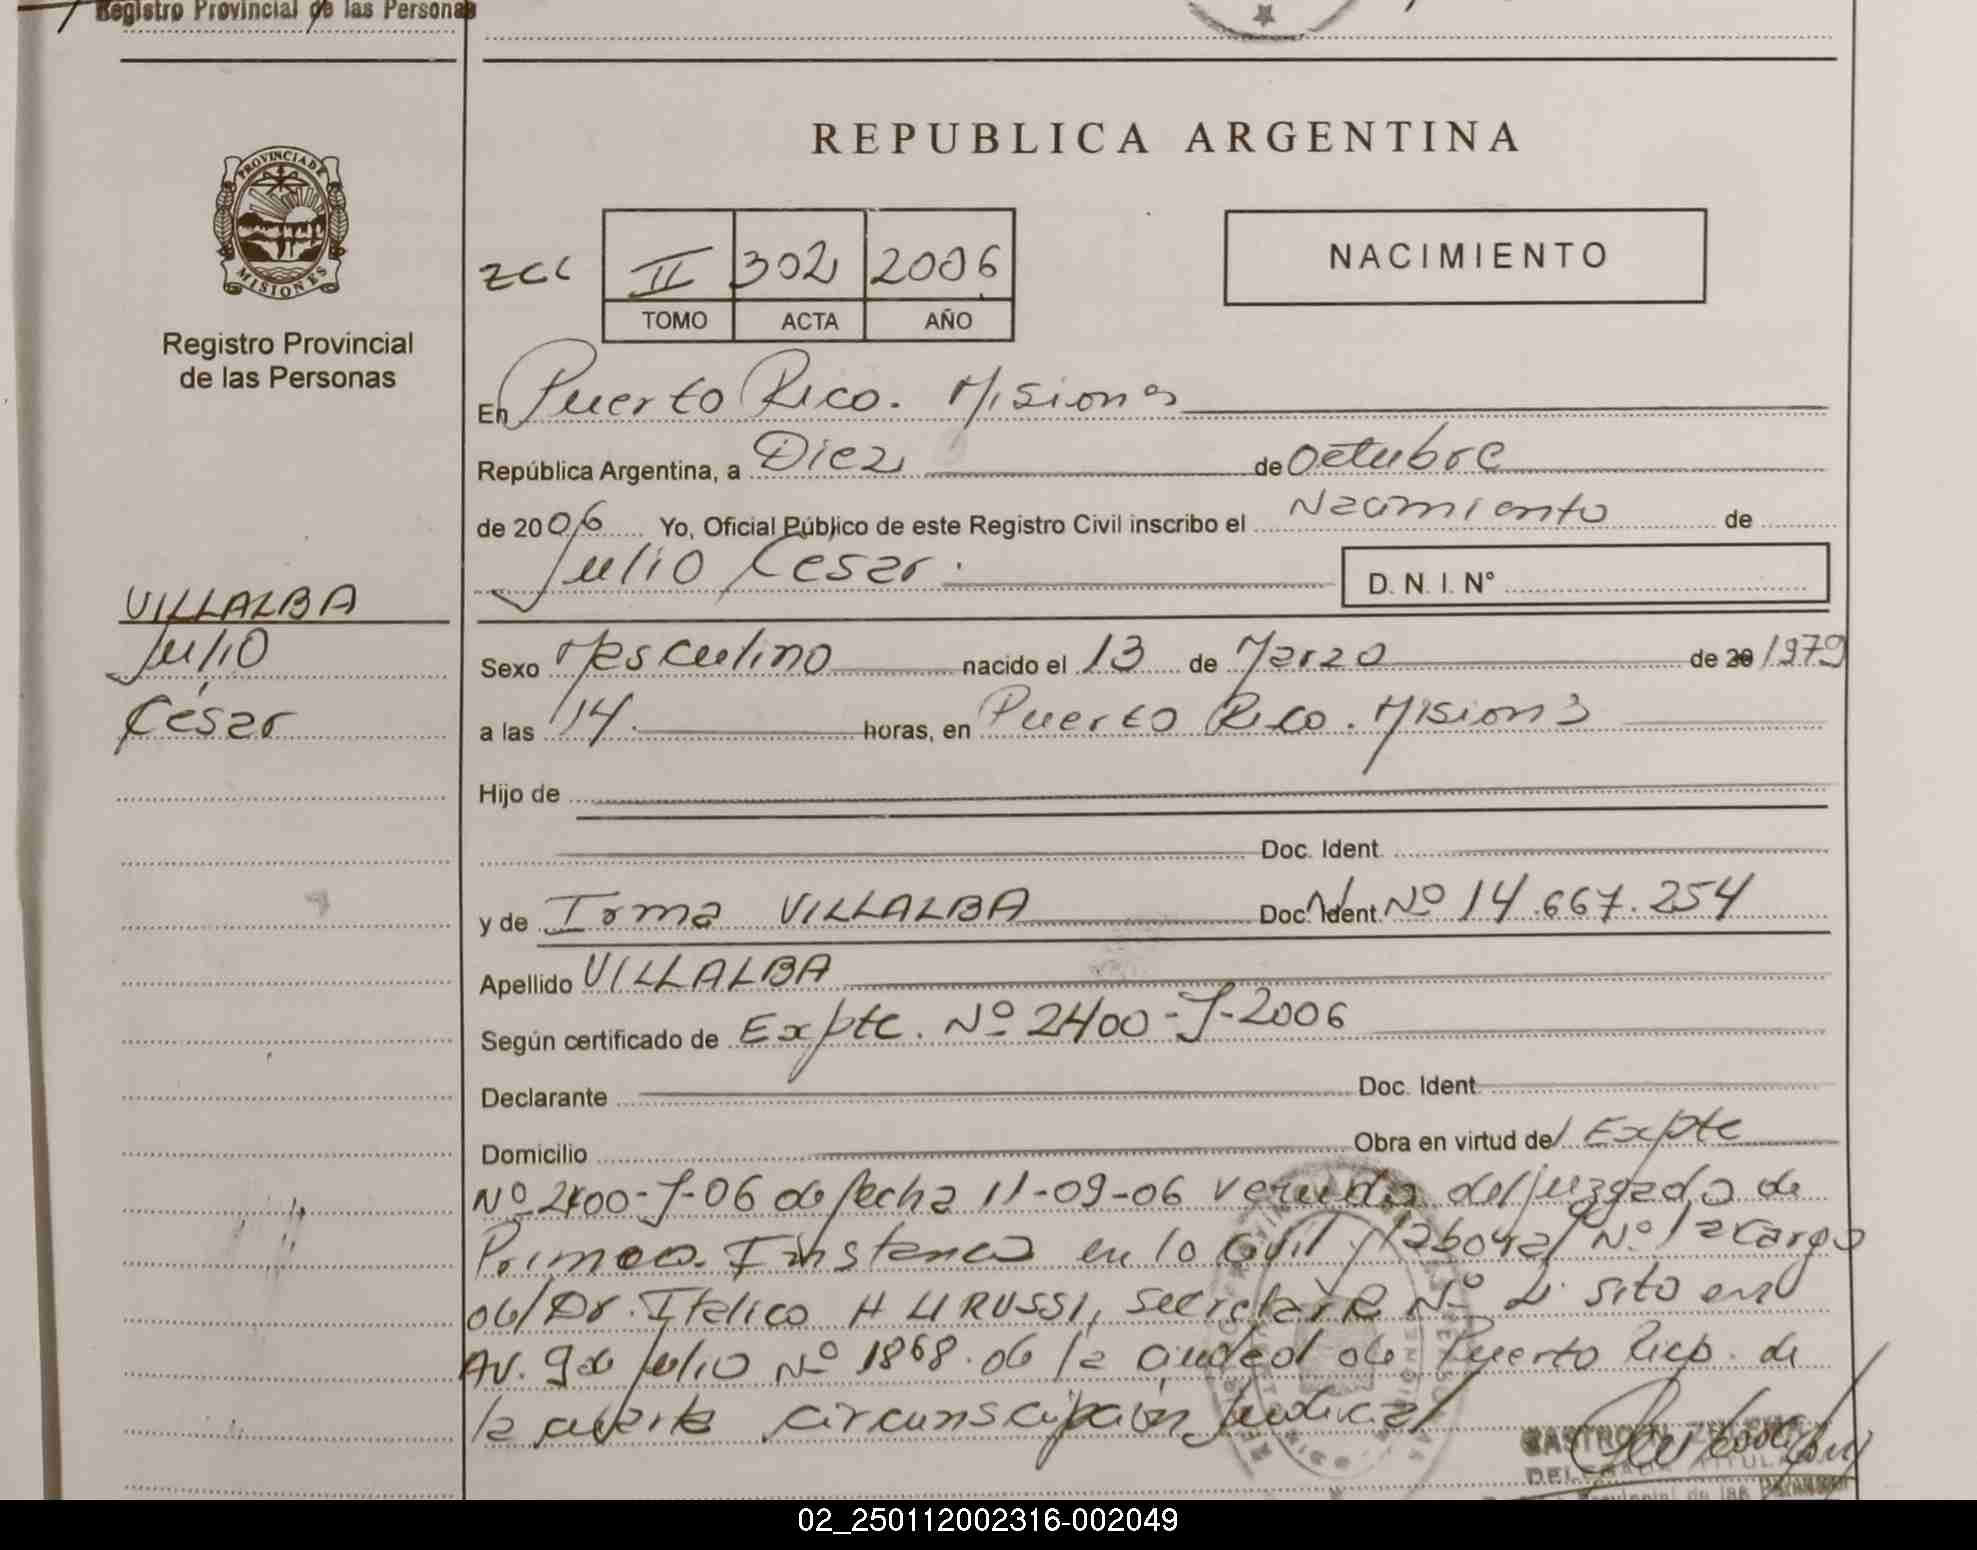 Registro Provincial de las Personas
REPUBLICA ARGENTINA
PROVINCIA DE
MISIONES
Registro Provincial
de las Personas
II 302 2006
TOMO ACTA AÑO
NACIMIENTO
En Puerto Rico. Misiones
República Argentina, a Diez de Octubre
de 2006 Yo, Oficial Público de este Registro Civil inscribo el Nacimiento de
Julio Cesar.
D. N. I. N°
VILLALBA
Julio
César
Sexo Masculino nacido el 13 de Marzo de 20 1979
a las 14. horas, en Puerto Rico. Misiones
Hijo de
Doc. Ident.
y de Irma VILLALBA Doc. Ident. Nº 14.667.254
Apellido VILLALBA
Según certificado de Expte. Nº 2400-J-2006
Declarante Doc. Ident.
Domicilio Obra en virtud del Expte
Nº 2400-J-06 de fecha 11-09-06 venido del juzgado de
Primera Instancia en lo Civil y laboral Nº 1 a cargo
del Dr. Italico H LIRUSSI, secretaría Nº sito en
AV. 9 de Julio Nº 1868. de la ciudad de Puerto Rico. de
la cuarta circunscripción Judicial
02_250112002316-002049